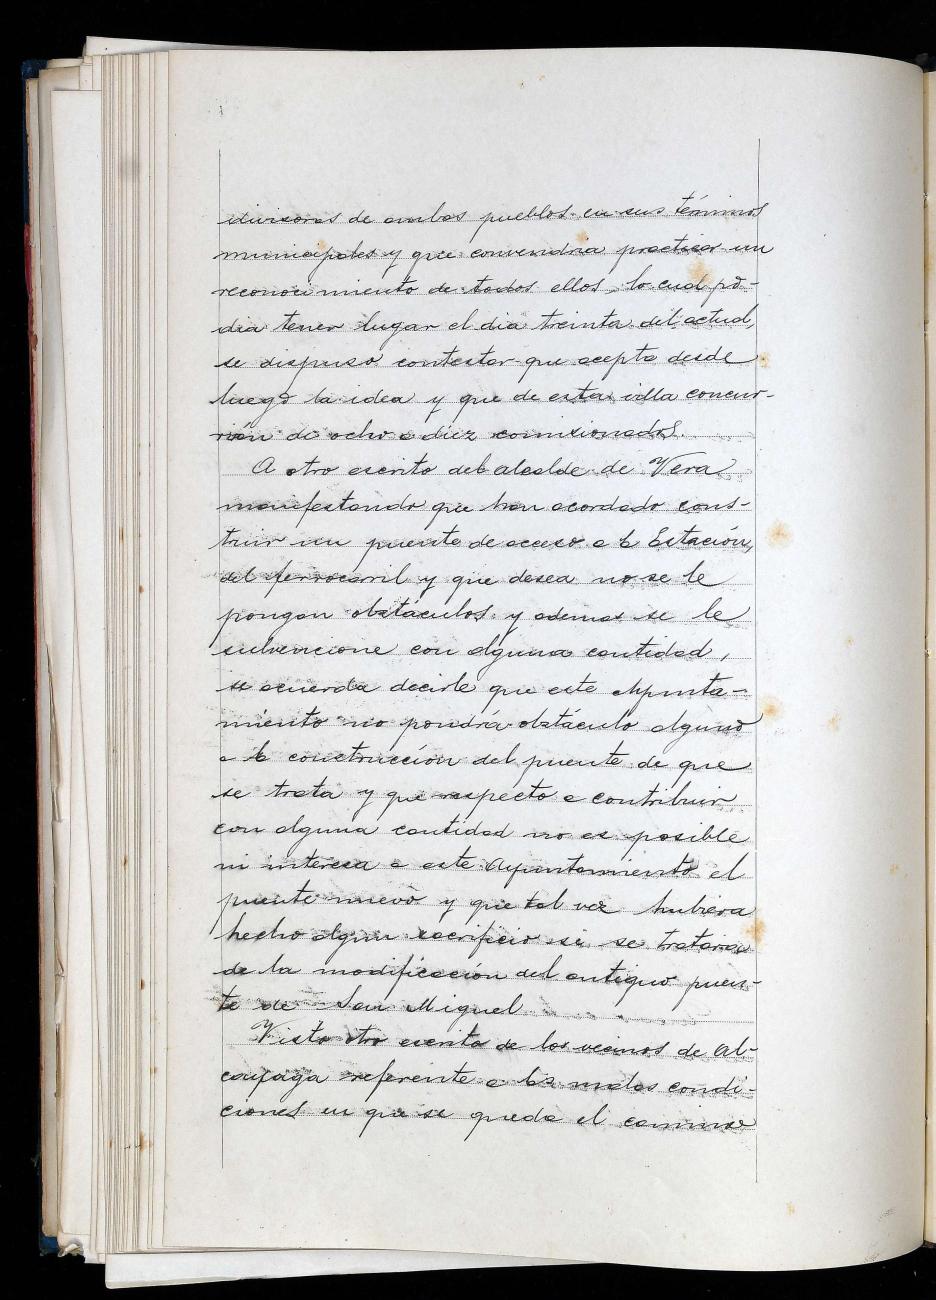 divisoras de ambos pueblos en sus términos
municipales y que convendria practicar un
reconocimiento de todos ellos, lo cual po-
dia tener lugar el dia treinta del actual,
se dispuso contestar que acepta desde
luego la idea y que de esta villa concur-
rirán de ocho a diez comisionados.
A otro escrito del alcalde de Vera
manifestando que han acordado cons-
truir un puente de acceso a la Estación,
del ferrocarril y que desea no se le
pongan obstáculos y ademas se le
subvencione con alguna cantidad,
se acuerda decirle que este Ayunta-
miento no pondrá obstáculo alguno
a la construcción del puente de que
se trata y que respecto a contribuir
con alguna cantidad no es posible
ni interesa a este Ayuntamiento el
puente nuevo y que tal vez hubiera
hecho algun sacrificio si se tratara
de la modificación del antiguo puen-
te de San Miguel
Visto otro escrito de los vecinos de Al-
cayaga referente a las malas condi-
ciones en que se queda el camino